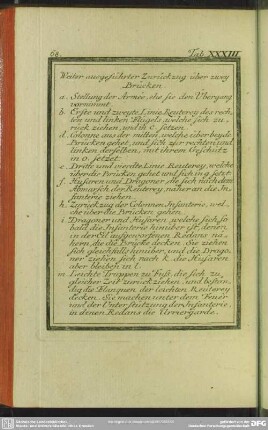 68.
Tab. XXXIII.
Weiter ausgeführter Zurückzug über zwey
Brücken.
a. Stellung der Armée, ehe sie den Übergang
vornimmt.
b. Erste und zweyte Linie Reuterey des rech-
ten und linken Flügels, welche sich zu-
rück ziehen, und in c. setzen.
d. Colonne aus der mitten, welche über beyde
Brücken gehet, und sich zur rechten und
linken derselben, mit ihrem Geschütz
in o. setzet.
e. Dritte und vierdte Linie Reuterey, welche
über die Brücken gehet und sich in g. setzt.
f. Husaren und Dragoner, die sich nach dem
Abmarsch der Reuterey, näher an die In-
fanterie ziehen.
h. Zurückzug der Colonnen Infanterie, wel-
che über die Brücken gehn.
i. Dragoner und Husaren, welche sich, so
bald die Infanterie hinüber ist, denen
in der Eil aufgeworffenen Redans nä-
hern, die die Brücke decken. Sie ziehen
sich gleichfalls hinüber, und die Drago-
ner ziehen sich nach k. die Husaren
aber bleiben in l.
m. Leichte Truppen zu Fuß, die sich zu
gleicher Zeit zurück ziehen, und bestän-
dig die Flanquen der leichten Reuterey
decken. Sie machen unter dem Feuer
und der Unterstützung der Infanterie,
in denen Redans die Arriergarde.